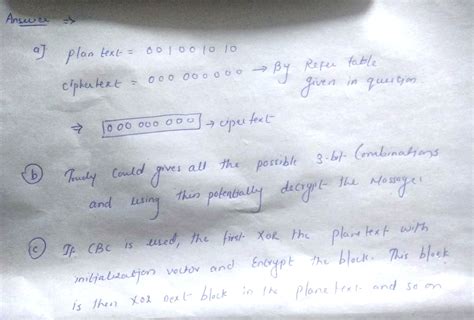 Answer ⇒
a] plan text = 0 0 1 0 0 1 0 1 0
ciphertext = 000 000000 → By Refer table
given in question
⇒ 000 000 000 → ciper text
(b) Trudy Could gives all the possible 3-bit Combinations
and using this potentially decrypt the Massage.
(c) If CBC is used, the first XOR the plane text with
initialization vector and Encrypt the block. This block
is then XOR next block in the plane text and so on